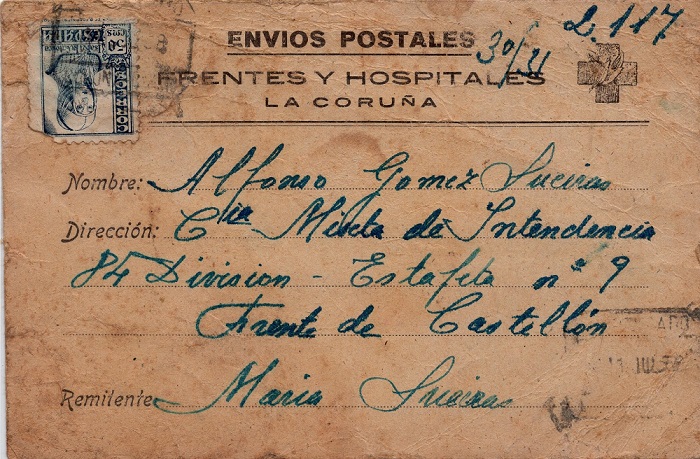 2.117
ENVIOS POSTALES
30/31
FRENTES Y HOSPITALES
LA CORUÑA
50 cts
CORREOS
Nombre: Alfonso Gomez Sueiras
Dirección: Cia Mixta de Intendencia
84 Division - Estafeta nº 9
Frente de Castellón
Remitente Maria Sueiras